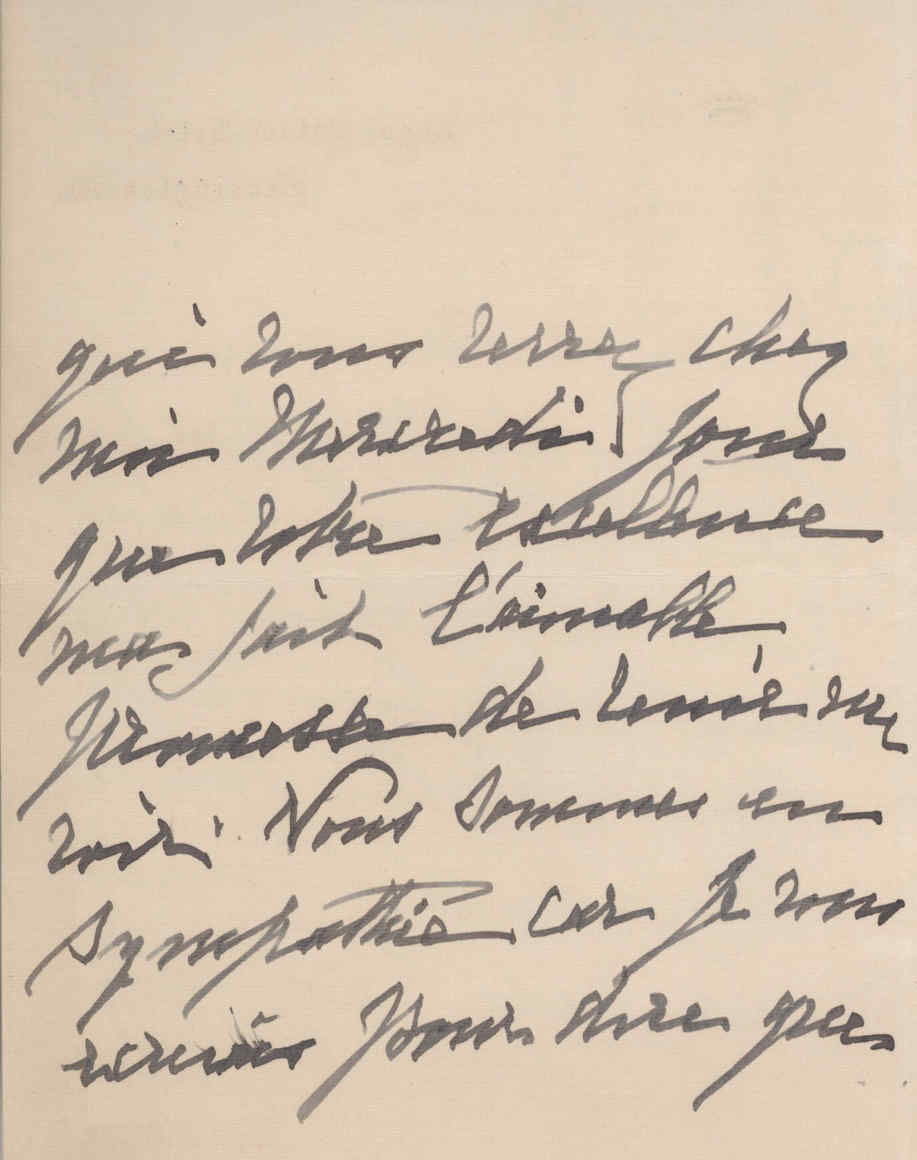 que vous verrez chez
moi Mercredi. Jour
que votre excellence
ma fait l'aimable
promesse de venir me
voir. Nous sommes en
sympathie car je vous
ecrivais pour dire que